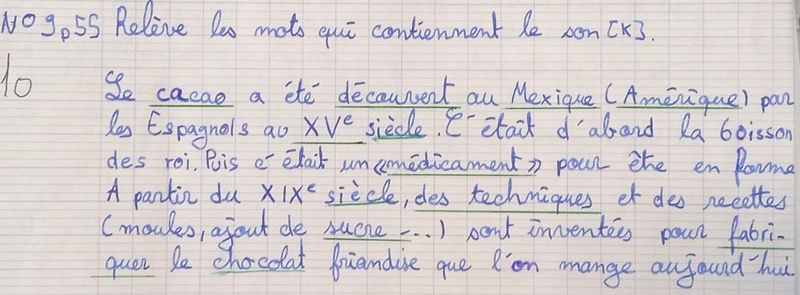 N°9p55 Relève les mots qui contiennent le son [K].
10 Le cacao a été découvert au Mexique (Amérique) par
les Espagnols au XVe siècle. C'était d'abord la boisson
des roi. Puis c'était un «médicament» pour être en forme
A partir du XIXe siècle, des techniques et des recettes
(moules, ajout de sucre -...) sont inventées pour fabri-
quer le chocolat friandise que l'on mange aujourd'hui